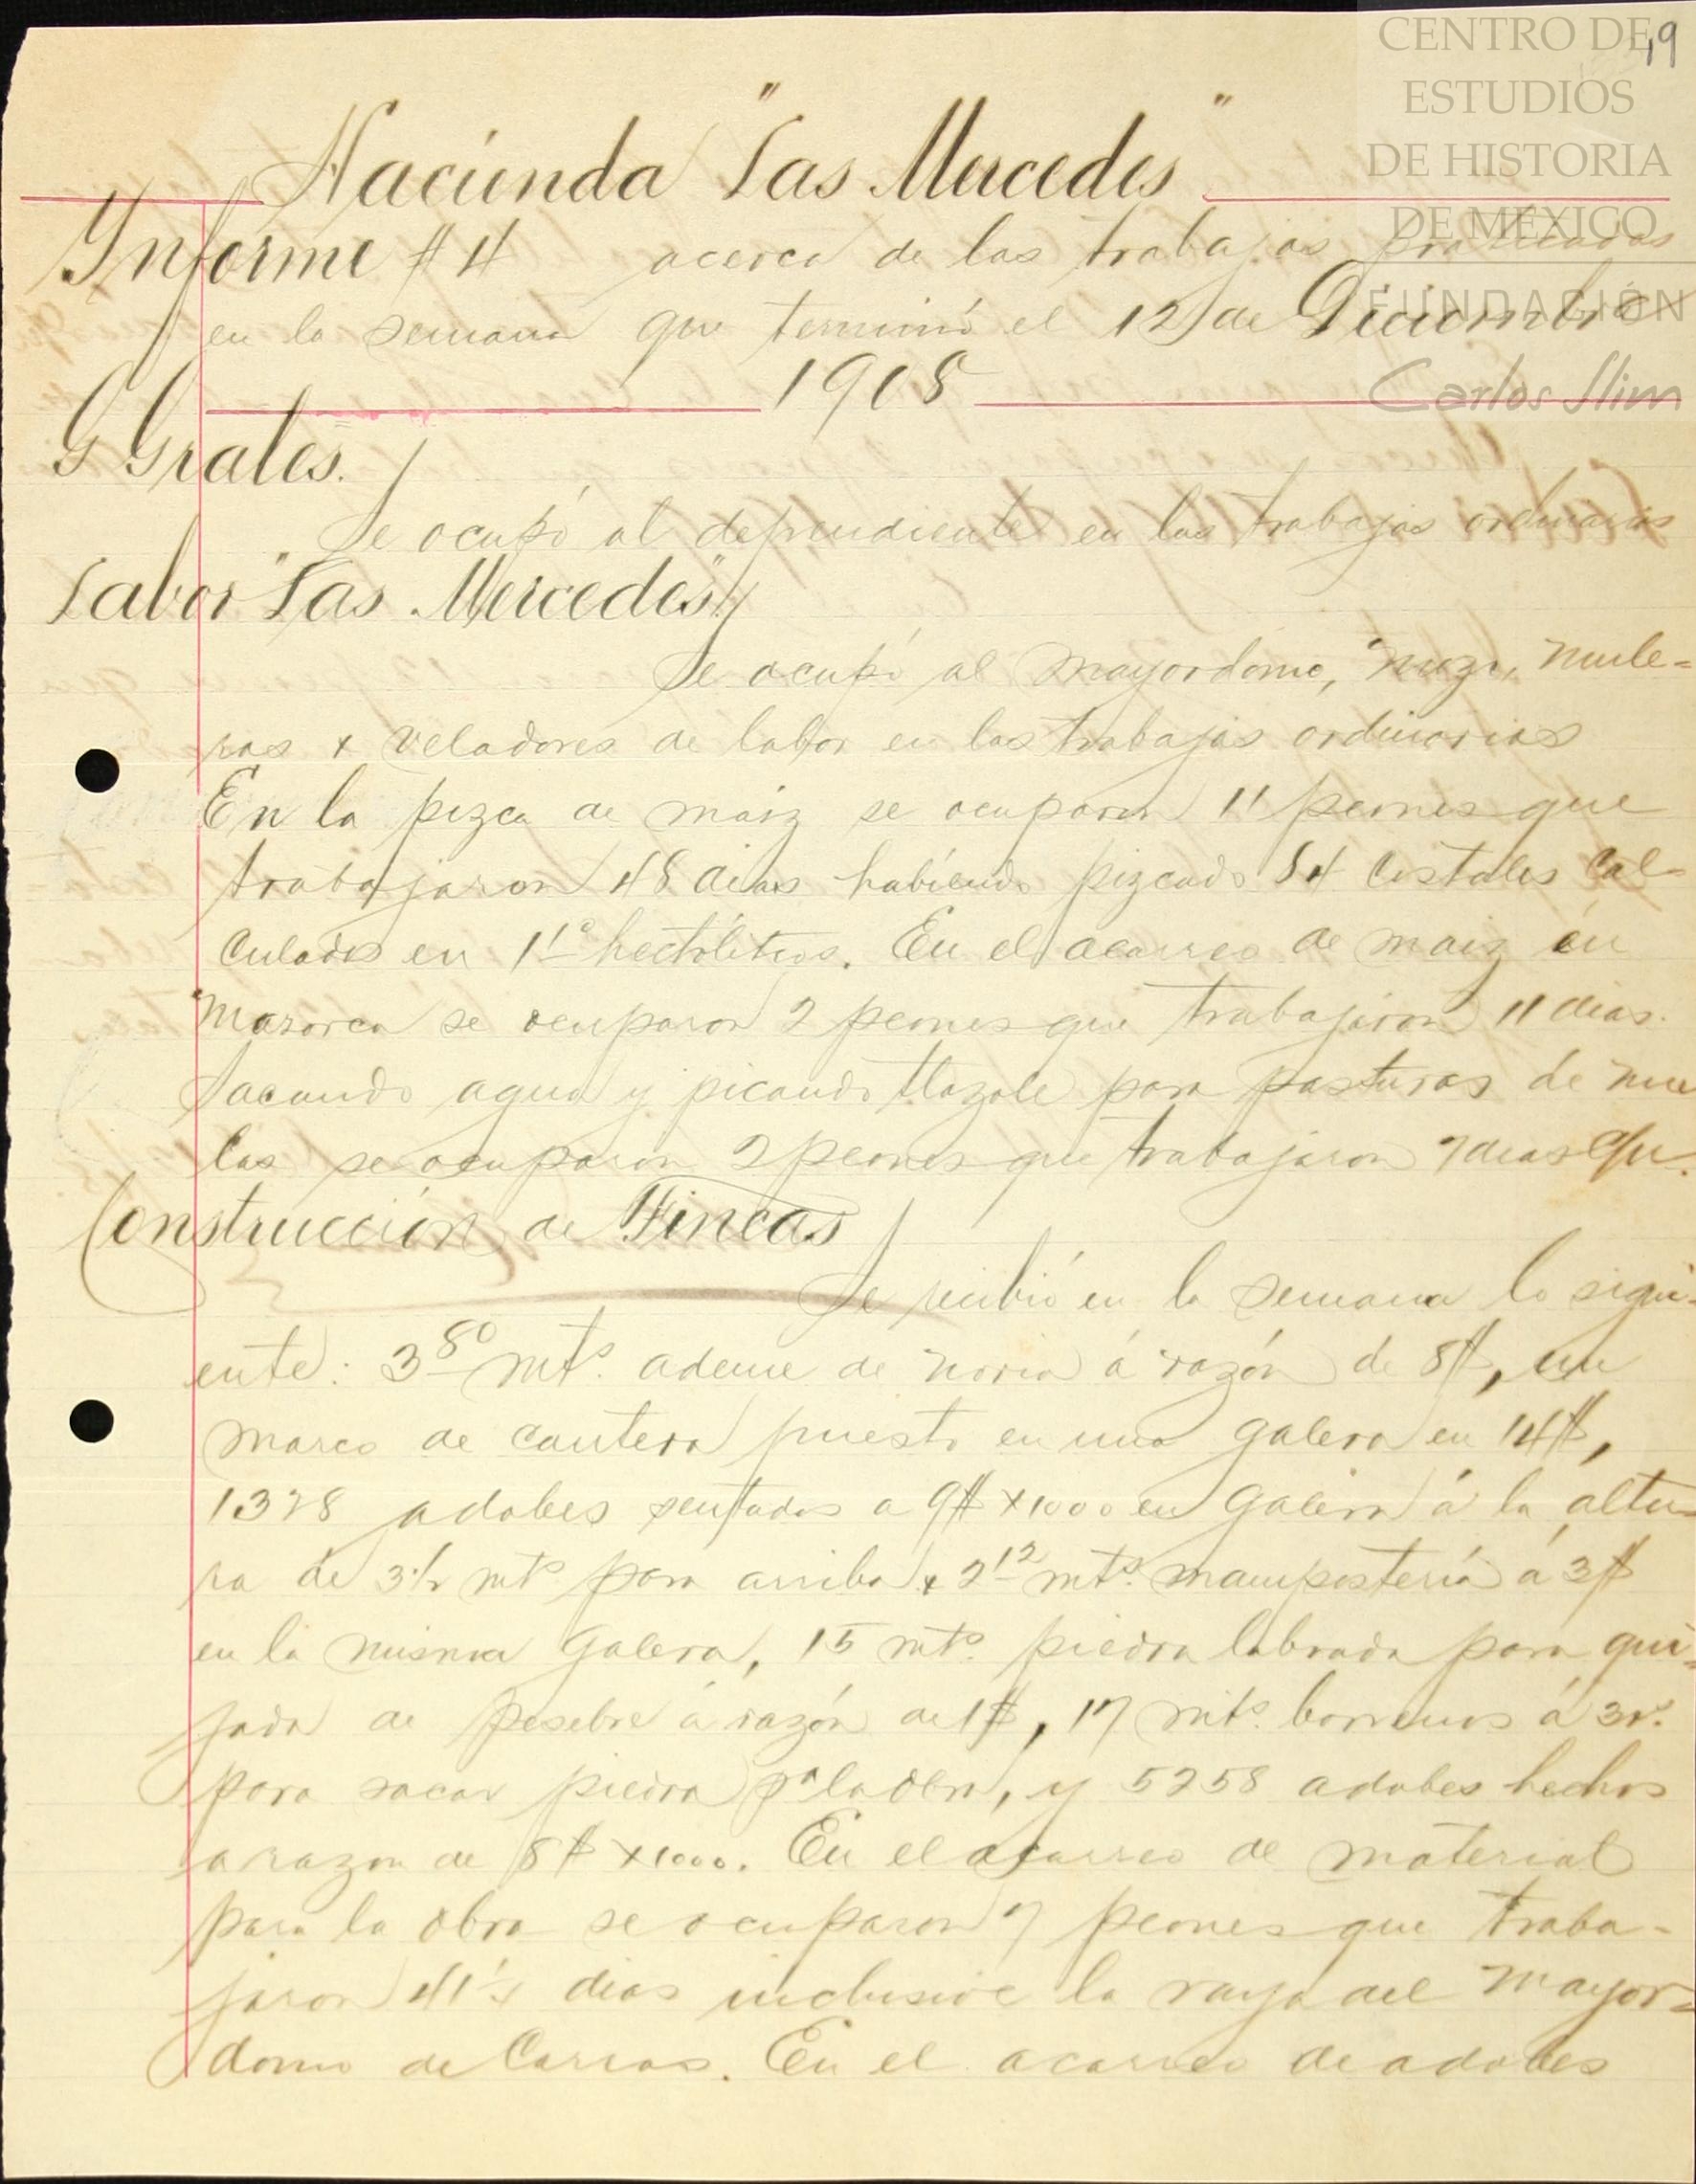 CENTRO DE
ESTUDIOS
DE HISTORIA
DE MÉXICO
FUNDACIÓN
Carlos Slim
19
Hacienda "Las Mercedes"
Informe # 4 acerca de los trabajos practicados
en la semana que terminó el 12 de Diciembre
1908
G Grales.
Se ocupó al dependiente en los trabajos ordinarios
Labor "Las Mercedes"
Se ocupó al mayordomo, mozo, mule-
ros y veladores de labor en los trabajos ordinarios
En la pizca de maiz se ocuparon 11 peones que
trabajaron 48 dias habiendo pizcado 84 costales cal-
culados en hectólitros. En el acarreo de maiz en
mazorca se ocuparon 2 peones que trabajaron 11 dias.
Sacando agua y picando tlazole para pasturas de mu
las se ocuparon 2 peones que trabajaron 7 dias
Construcción de Fincas
Se recibió en la semana lo sigui-
ente: 3 80 mts. ademe de noria á razón de 8$, un
marco de cantera puesto en una galera en 14$,
1328 adobes sentados a 9$ x 1000 en galera á la altu-
ra de 3½ mts para arriba y 2 12 mts. mampostería á 3$
en la misma galera, 15 mts. piedra labrada para qui-
jada de pesebre á razón de 1$, 17 mts. barrenos á 3 r.
para sacar piedra pa la obra, y 5258 adobes hechos
a razon de 8$ x 1000. En el acarreo de material
para la obra se ocuparon 7 peones que traba-
jaron dias inclusive la raya del mayor-
domo de Carros. En el acarreo de adobes